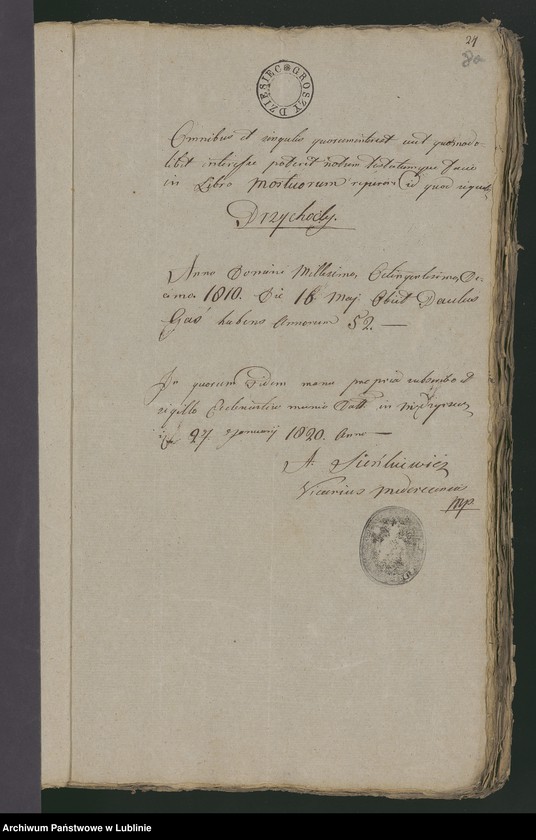 24
8a
DZIESIEC GROSZY
Omnibus et singulis quorum interest aut quomodo
libet interesse poterit notum testatumque facio
in Libro Mortuorum reperiri id quod sequit
Przychody.
Anno Domini Millesimo, Octingentesimo, De-
cimo 1810. Die 16 Maj. Obiit Paulus
Gaś habens Annorum 52. —
In quorum Fidem manu propria subscribo et
sigillo Ecclesiastico munio Datt. in
27. January 1820. Anno —
A. Sieńkiewicz
Vicarius
Mp.
Archiwum Państwowe w Lublinie